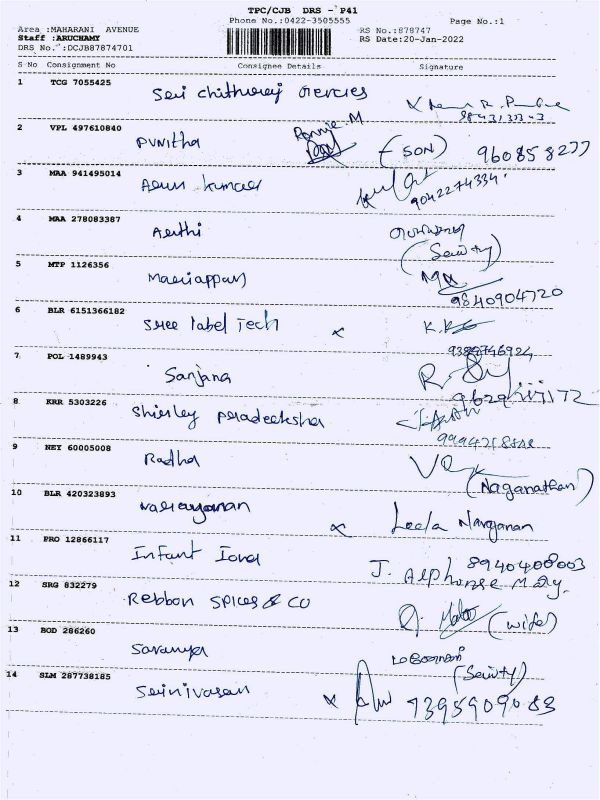 TPC/CJB DRS - P41
Phone No.:0422-3505555
Page No.:1
Area :MAHARANI AVENUE
RS No.:878747
Staff :ARUCHAMY
RS Date:20-Jan-2022
DRS No.:DCJB87874701
S No Consignment No Consignee Details Signature
1 TCG 7055425
Sri chithuraj
2 VPL 497610840
Punitha Ronnie.M (SON) 960858277
3 MAA 941495014
Arun kumar 9042274334
4 MAA 278083387
Arthi
5 MTP 1126356
Mariappan 9840904720
6 BLR 6151366182
Shree label Tech x K.
7 POL 1489943
Sanjana R.
8 KRR 5303226
Shirley Pradeeksha
9 NEY 60005008
Radha (Naganathan)
10 BLR 420323893
Narayanan x Leela Narayanan
11 PRO 12866117
Infant J. Alphonse Mary. 8940408003
12 SRG 832279
Rebbon Spices & CO (wife)
13 BOD 286260
Saranya
14 SLM 287738185
Srinivasan x 7395909083